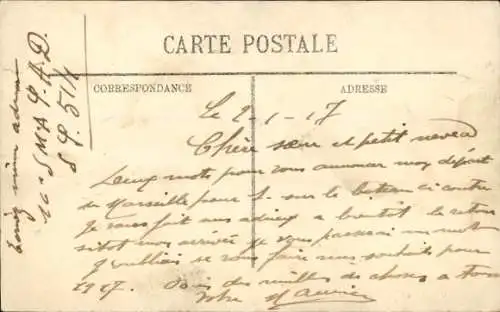 CARTE POSTALE
CORRESPONDANCE
ADRESSE
Le 2-1-17
Chère sœur et petit neveu
Deux mots pour vous annoncer mon départ
de Marseille pour S. sur le bateau ci contre
je vous fait mes adieux a bientôt le retour
sitot mon arrivée je vous passerai un mot
j'oubliais de vous faire mes souhaits pour
1917. Bons des milles de choses a tous
Votre Maurice
10e S M A P. A. D.
S P. 511